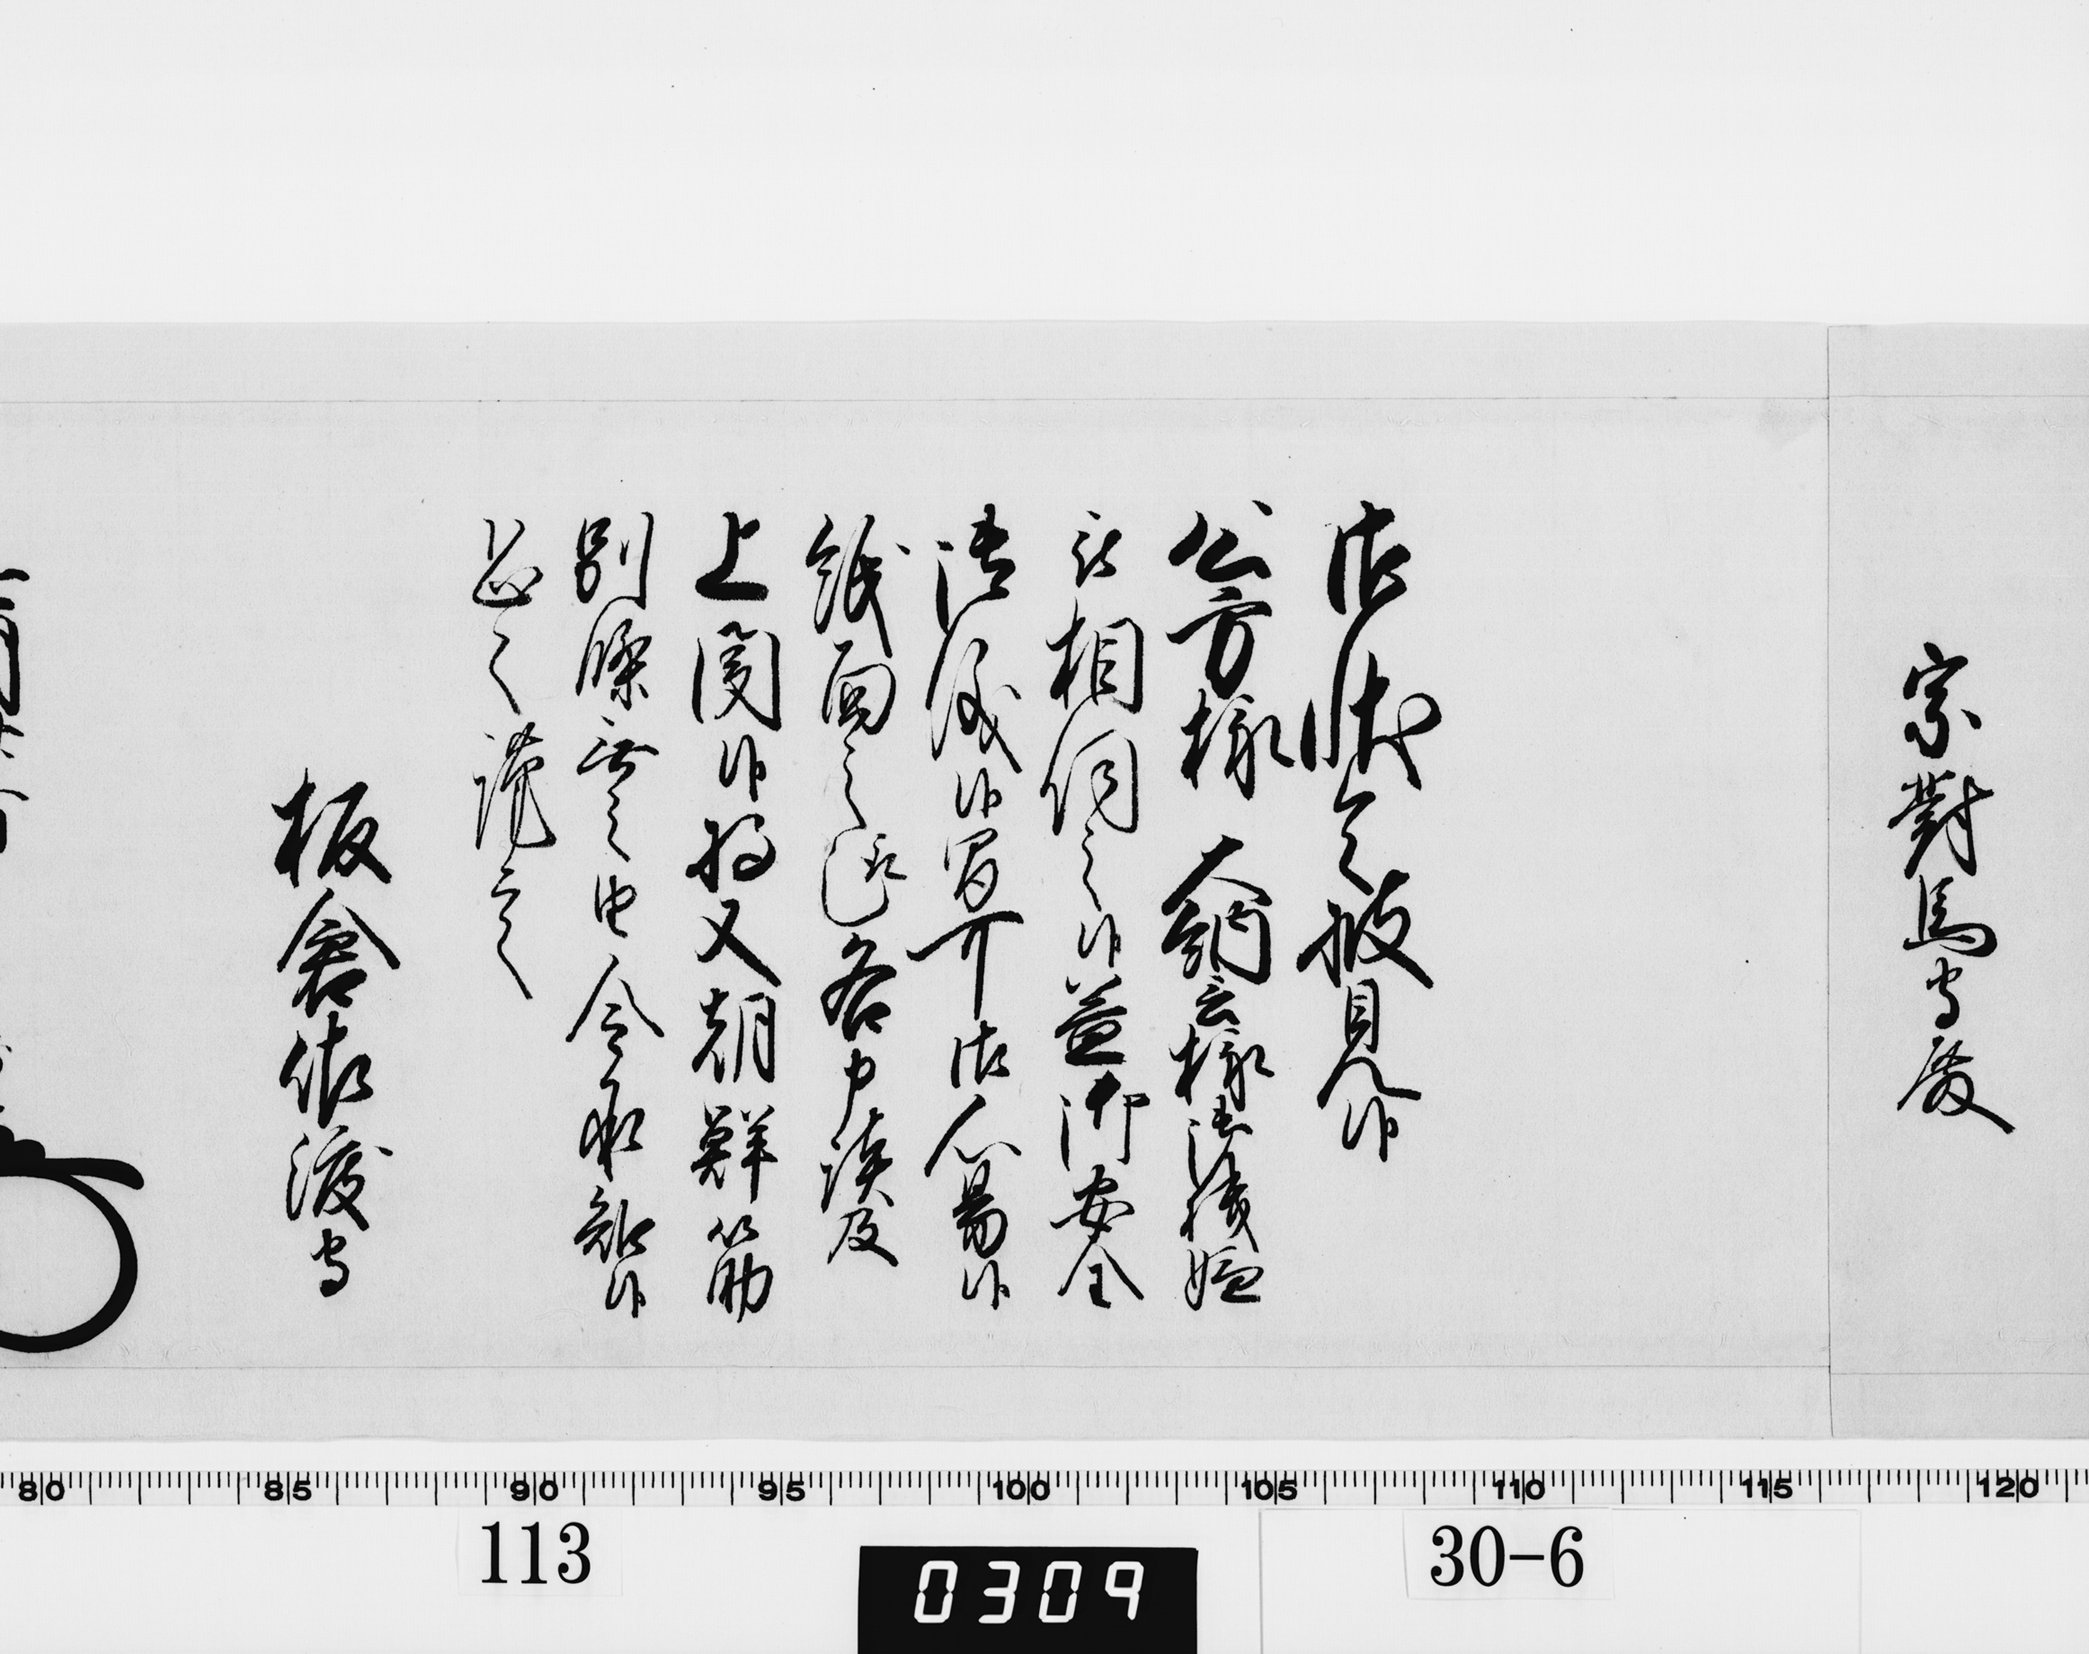 宗對馬守殿
御状令披見候
公方様大納言様御機嫌
被相伺之候益御安全
御儀候間可御心易候
紙面之趣各申談及
上聞候将又朝鮮筋
別條無之由令承知候
恐々謹言
板倉佐渡守
80 85 90 95 100 105 110 115 120
113
0309
30-6